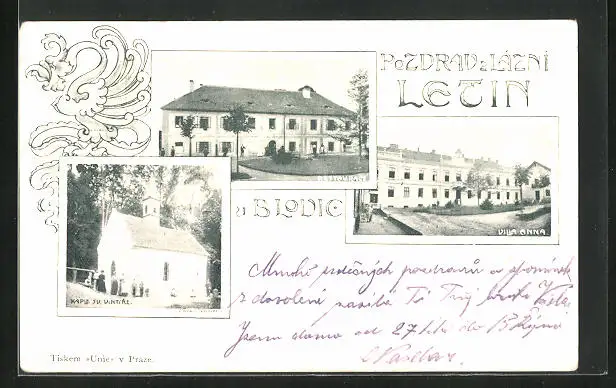 POZDRAV z LÁZNÍ
LETIN
u BLOVIC
VILLA ANNA.
KAPLE SV. VINTÍŘE.
Mnoho srdečných pozdravů a vzpomínek
z dovolené zasílá Ti Tvůj
Jsem doma od 27 do října
Tiskem »Unie« v Praze.